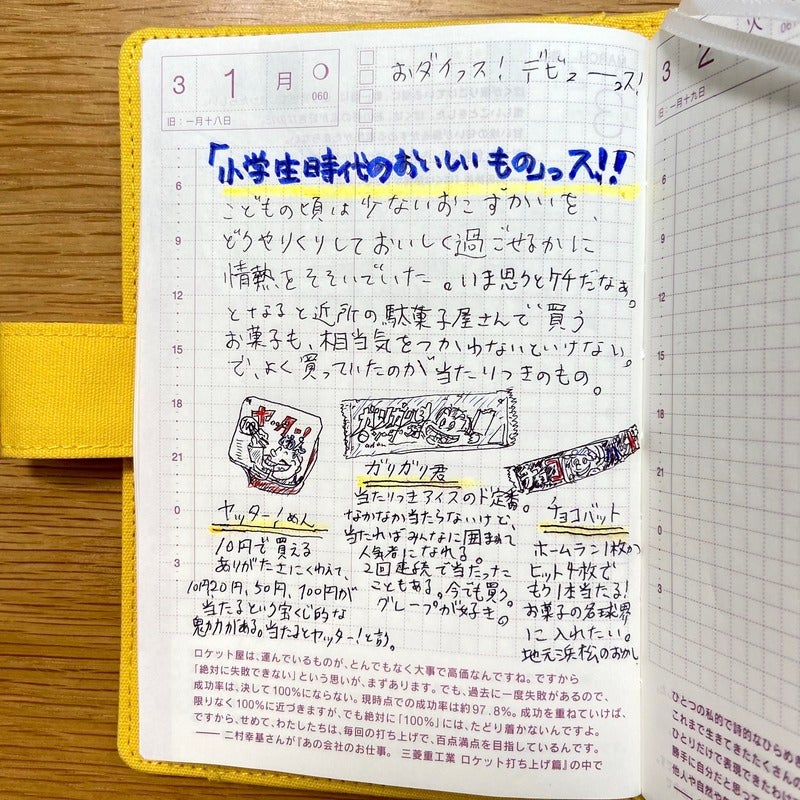 3 1 月
060
旧：一月十八日
おダイっス！デビューっス！
「小学生時代のおいしいもの」っス！！
こどもの頃は少ないおこずかいを、
どうやりくりしておいしく過ごせるかに
情熱をそそいでいた。いま思うとケチだなぁ。
となると近所の駄菓子屋さんで買う
お菓子も、相当気をつかわないといけない。
で、よく買っていたのが当たりつきのもの。
ヤッター！めん
10円で買える
ありがたさにくわえて、
10円20円、50円、100円が
当たるという宝くじ的な
魅力がある。当たるとヤッター！と言う。
ガリガリ君
当たりつきアイスのド定番。
なかなか当たらないけど、
当たればみんなに囲まれて
人気者になれる。
2回連続で当たった
こともある。今でも買う。
グレープが好き。
チョコバット
ホームラン1枚か
ヒット4枚で
もう1本当たる！
お菓子の名球界
に入れたい。
地元浜松のおかし
6
9
12
15
18
21
0
3
ロケット屋は、運んでいるものが、とんでもなく大事で高価なんですね。ですから
「絶対に失敗できない」という思いが、まずあります。でも、過去に一度失敗があるので、
成功率は、決して100％にならない。現時点での成功率は約97.8％。成功を重ねていけば、
限りなく100％に近づきますが、でも絶対に「100％」には、たどり着かないんですよ。
ですから、せめて、わたしたちは、毎回の打ち上げで、百点満点を目指しているんです。
── 二村幸基さんが『あの会社のお仕事。 三菱重工業 ロケット打ち上げ篇』の中で
3 2 火
旧：一月十九日
6
9
12
15
18
21
0
3
ひとつの私的で詩的なひらめき
これまで生きてきたたくさんの
ひとりだけで表現できたわけ
勝手に自分だと思って
他人や自然や